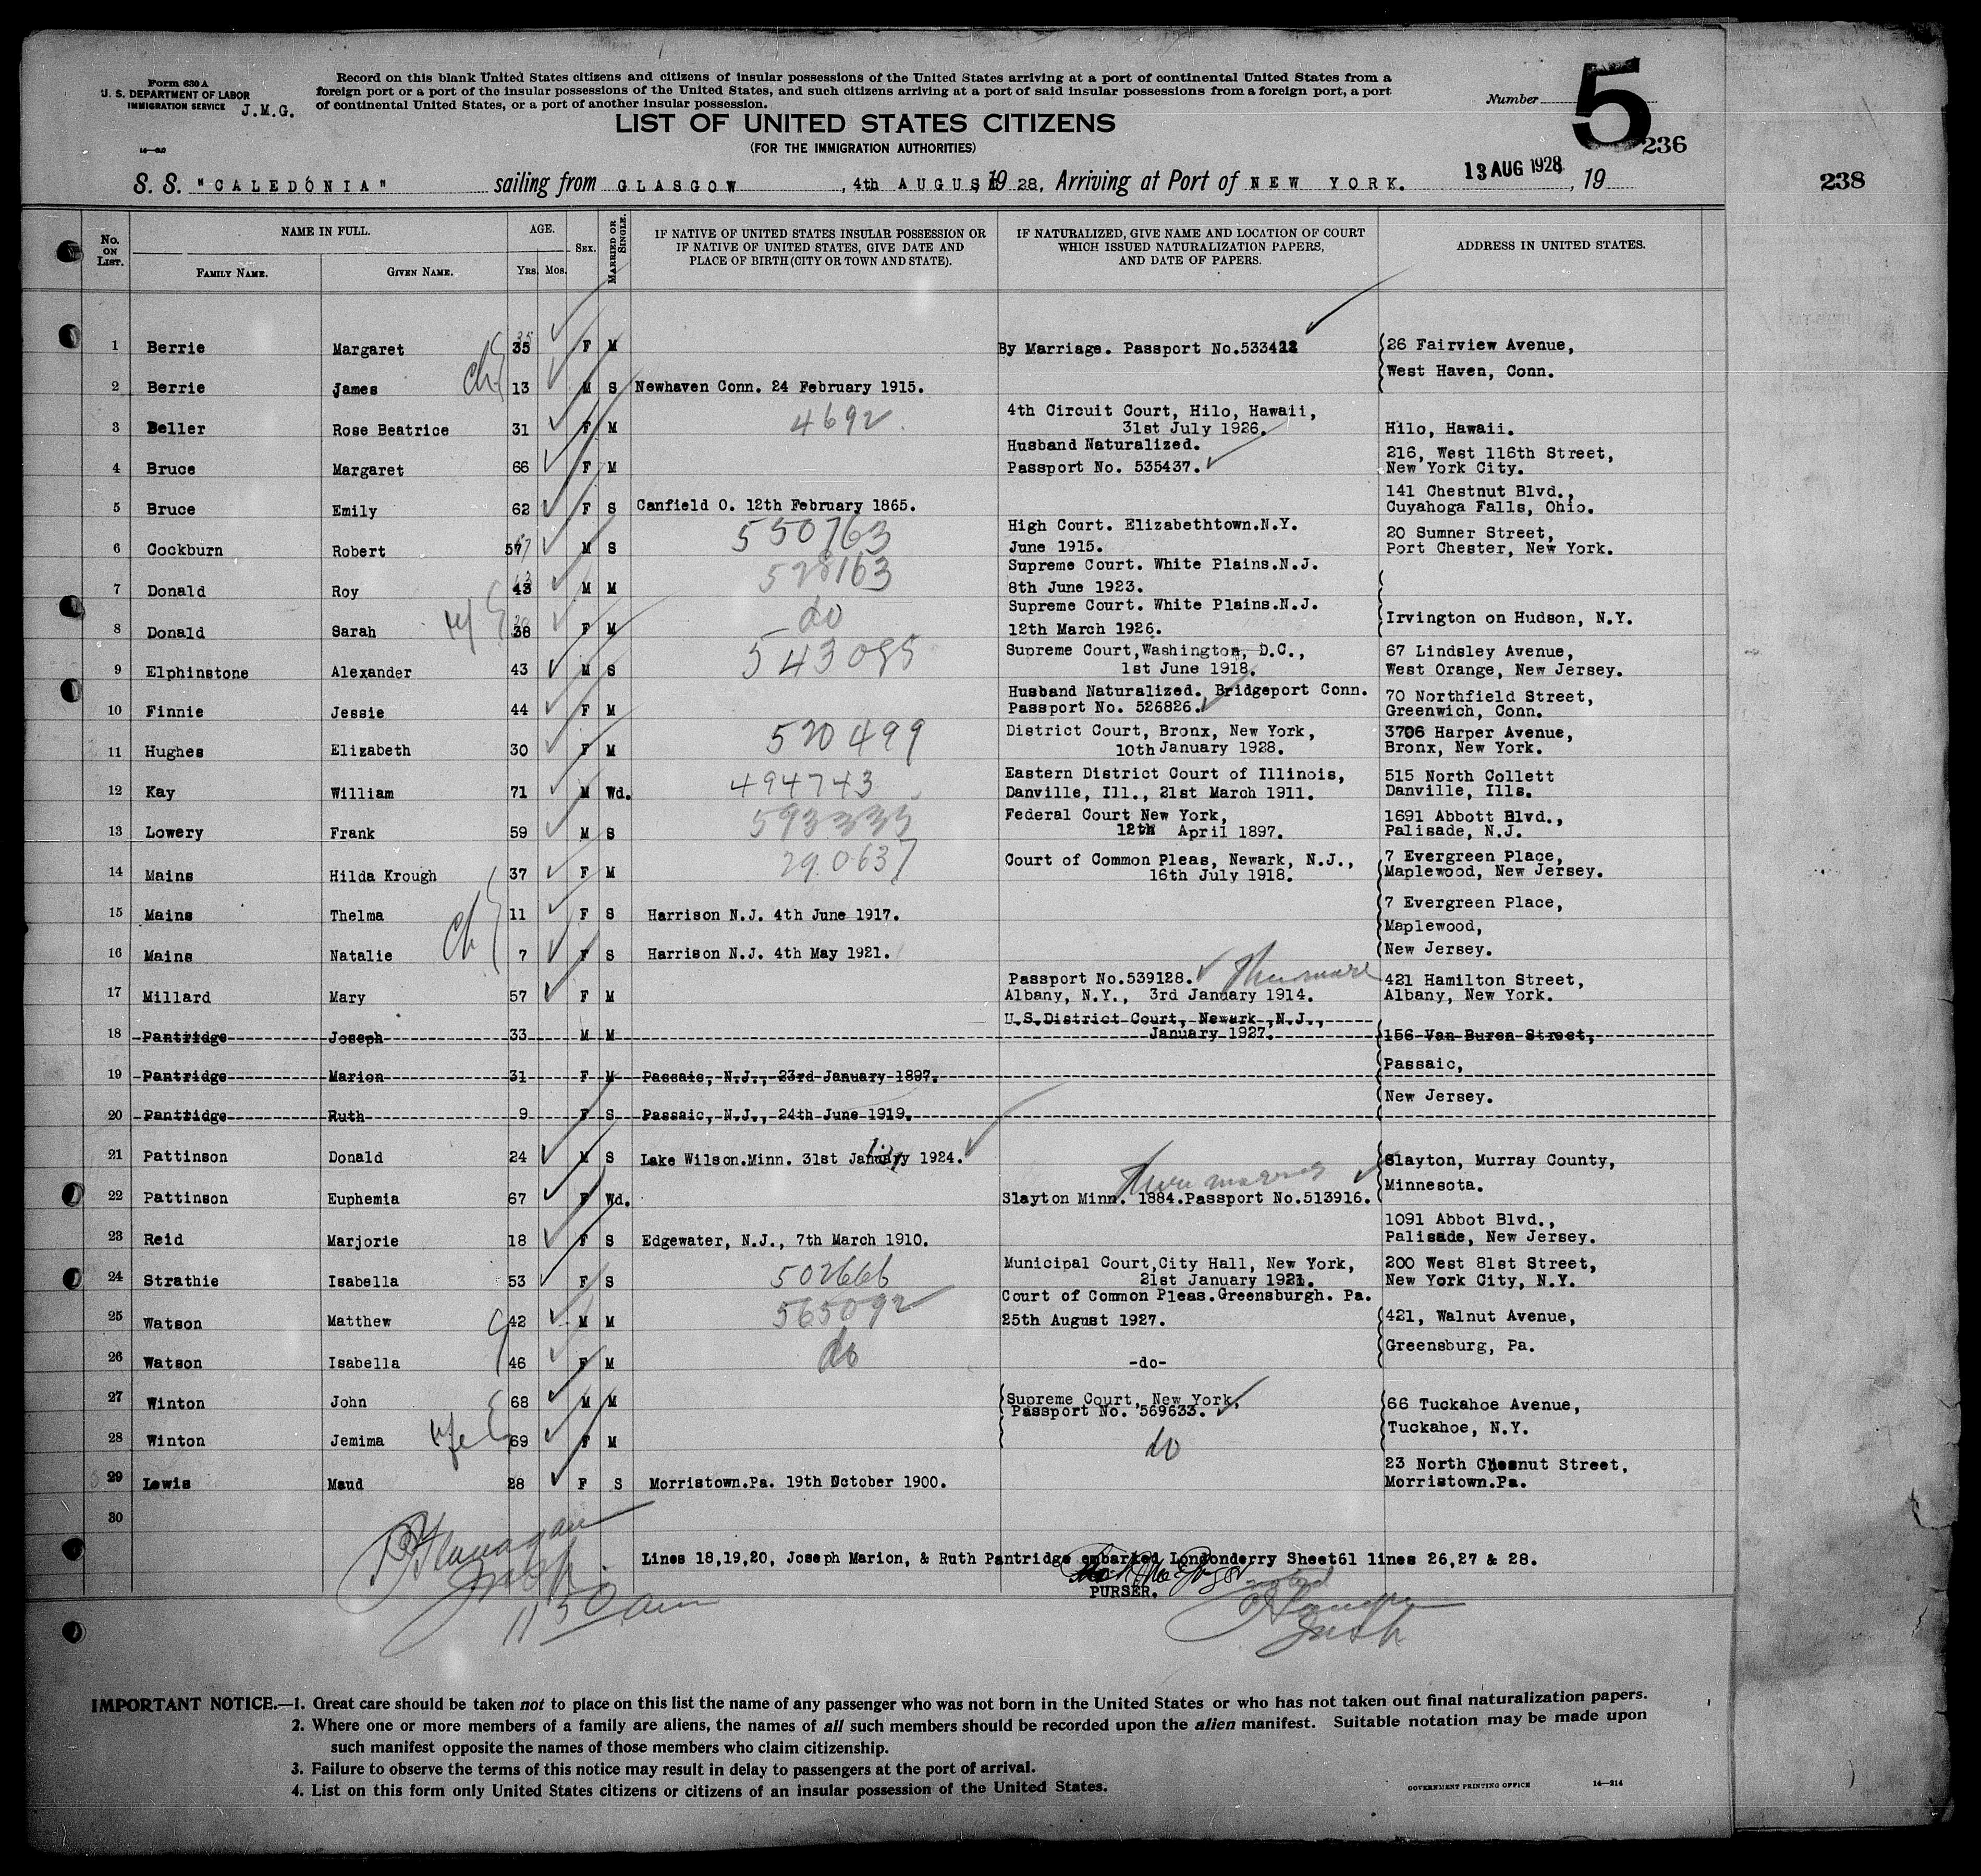 Form 630 A
U. S. DEPARTMENT OF LABOR
IMMIGRATION SERVICE
J.M.G.
Record on this blank United States citizens and citizens of insular possessions of the United States arriving at a port of continental United States from a
foreign port or a port of the insular possessions of the United States, and such citizens arriving at a port of said insular possessions from a foreign port, a port
of continental United States, or a port of another insular possession.
Number 5
236
238
LIST OF UNITED STATES CITIZENS
(FOR THE IMMIGRATION AUTHORITIES)
S. S. "CALEDONIA" sailing from GLASGOW, 4th AUGUST 1928, Arriving at Port of NEW YORK. 13 AUG 1928, 19
No. ON LIST. NAME IN FULL. AGE. SEX. MARRIED OR SINGLE. IF NATIVE OF UNITED STATES INSULAR POSSESSION OR IF NATIVE OF UNITED STATES, GIVE DATE AND PLACE OF BIRTH (CITY OR TOWN AND STATE). IF NATURALIZED, GIVE NAME AND LOCATION OF COURT WHICH ISSUED NATURALIZATION PAPERS, AND DATE OF PAPERS. ADDRESS IN UNITED STATES.
FAMILY NAME. GIVEN NAME. YRS. MOS.
1 Berrie Margaret 35 F M By Marriage. Passport No. 26 Fairview Avenue,
2 Berrie James 13 M S Newhaven Conn. 24 February 1915. West Haven, Conn.
3 Beller Rose Beatrice 31 F M 4692 4th Circuit Court, Hilo, Hawaii, 31st July 1926. Hilo, Hawaii.
4 Bruce Margaret 66 F M Husband Naturalized. Passport No. 535437. 216, West 116th Street, New York City.
5 Bruce Emily 62 F S Canfield O. 12th February 1865. 141 Chestnut Blvd., Cuyahoga Falls, Ohio.
6 Cockburn Robert 57 M S 550763 High Court. Elizabethtown.N.Y. June 1915. 20 Sumner Street, Port Chester, New York.
7 Donald Roy 43 M M 528163 Supreme Court. White Plains.N.J. 8th June 1923.
8 Donald Sarah 38 F M do Supreme Court. White Plains.N.J. 12th March 1926. Irvington on Hudson, N.Y.
9 Elphinstone Alexander 43 M S 543085 Supreme Court,Washington, D.C., 1st June 1918. 67 Lindsley Avenue, West Orange, New Jersey.
10 Finnie Jessie 44 F M Husband Naturalized. Bridgeport Conn. Passport No. 526826. 70 Northfield Street, Greenwich, Conn.
11 Hughes Elizabeth 30 F M 520499 District Court, Bronx, New York, 10th January 1928. 3706 Harper Avenue, Bronx, New York.
12 Kay William 71 M Wd. 494743 Eastern District Court of Illinois, Danville, Ill., 21st March 1911. 515 North Collett Danville, Ills.
13 Lowery Frank 59 M S 593335 Federal Court New York, 12th April 1897. 1691 Abbott Blvd., Palisade, N.J.
14 Mains Hilda Krough 37 F M 290637 Court of Common Pleas, Newark, N.J., 16th July 1918. 7 Evergreen Place, Maplewood, New Jersey.
15 Mains Thelma 11 F S Harrison N.J. 4th June 1917. 7 Evergreen Place, Maplewood,
16 Mains Natalie 7 F S Harrison N.J. 4th May 1921. New Jersey.
17 Millard Mary 57 F M Passport No.539128. Albany, N.Y., 3rd January 1914. 421 Hamilton Street, Albany, New York.
18 Pantridge Joseph 33 M M U.S.District Court, Newark,N.J., January 1927. 156 Van Buren Street,
19 Pantridge Marion 31 F M Passaic, N.J., 23rd January 1897. Passaic,
20 Pantridge Ruth 9 F S Passaic, N.J., 24th June 1919. New Jersey.
21 Pattinson Donald 24 M S Lake Wilson.Minn. 31st January 1924. Slayton, Murray County,
22 Pattinson Euphemia 67 F Wd. Slayton Minn. 1884.Passport No.513916. Minnesota.
23 Reid Marjorie 18 F S Edgewater, N.J., 7th March 1910. 1091 Abbot Blvd., Palisade, New Jersey.
24 Strathie Isabella 53 F S 502666 Municipal Court,City Hall, New York, 21st January 1921. 200 West 81st Street, New York City, N.Y.
25 Watson Matthew 42 M M 565092 Court of Common Pleas.Greensburgh. Pa. 25th August 1927. 421, Walnut Avenue,
26 Watson Isabella 46 F M do -do- Greensburg, Pa.
27 Winton John 68 M M Supreme Court, New York, Passport No. 569633. 66 Tuckahoe Avenue,
28 Winton Jemima 69 F M do Tuckahoe, N.Y.
29 Lewis Maud 28 F S Morristown.Pa. 19th October 1900. 23 North Chesnut Street, Morristown.Pa.
30
Lines 18,19,20, Joseph Marion, & Ruth Pantridge embarked Londonderry Sheet61 lines 26,27 & 28.
PURSER.
11 50 am
IMPORTANT NOTICE.—1. Great care should be taken not to place on this list the name of any passenger who was not born in the United States or who has not taken out final naturalization papers.
2. Where one or more members of a family are aliens, the names of all such members should be recorded upon the alien manifest. Suitable notation may be made upon
such manifest opposite the names of those members who claim citizenship.
3. Failure to observe the terms of this notice may result in delay to passengers at the port of arrival.
4. List on this form only United States citizens or citizens of an insular possession of the United States.
GOVERNMENT PRINTING OFFICE 14—214